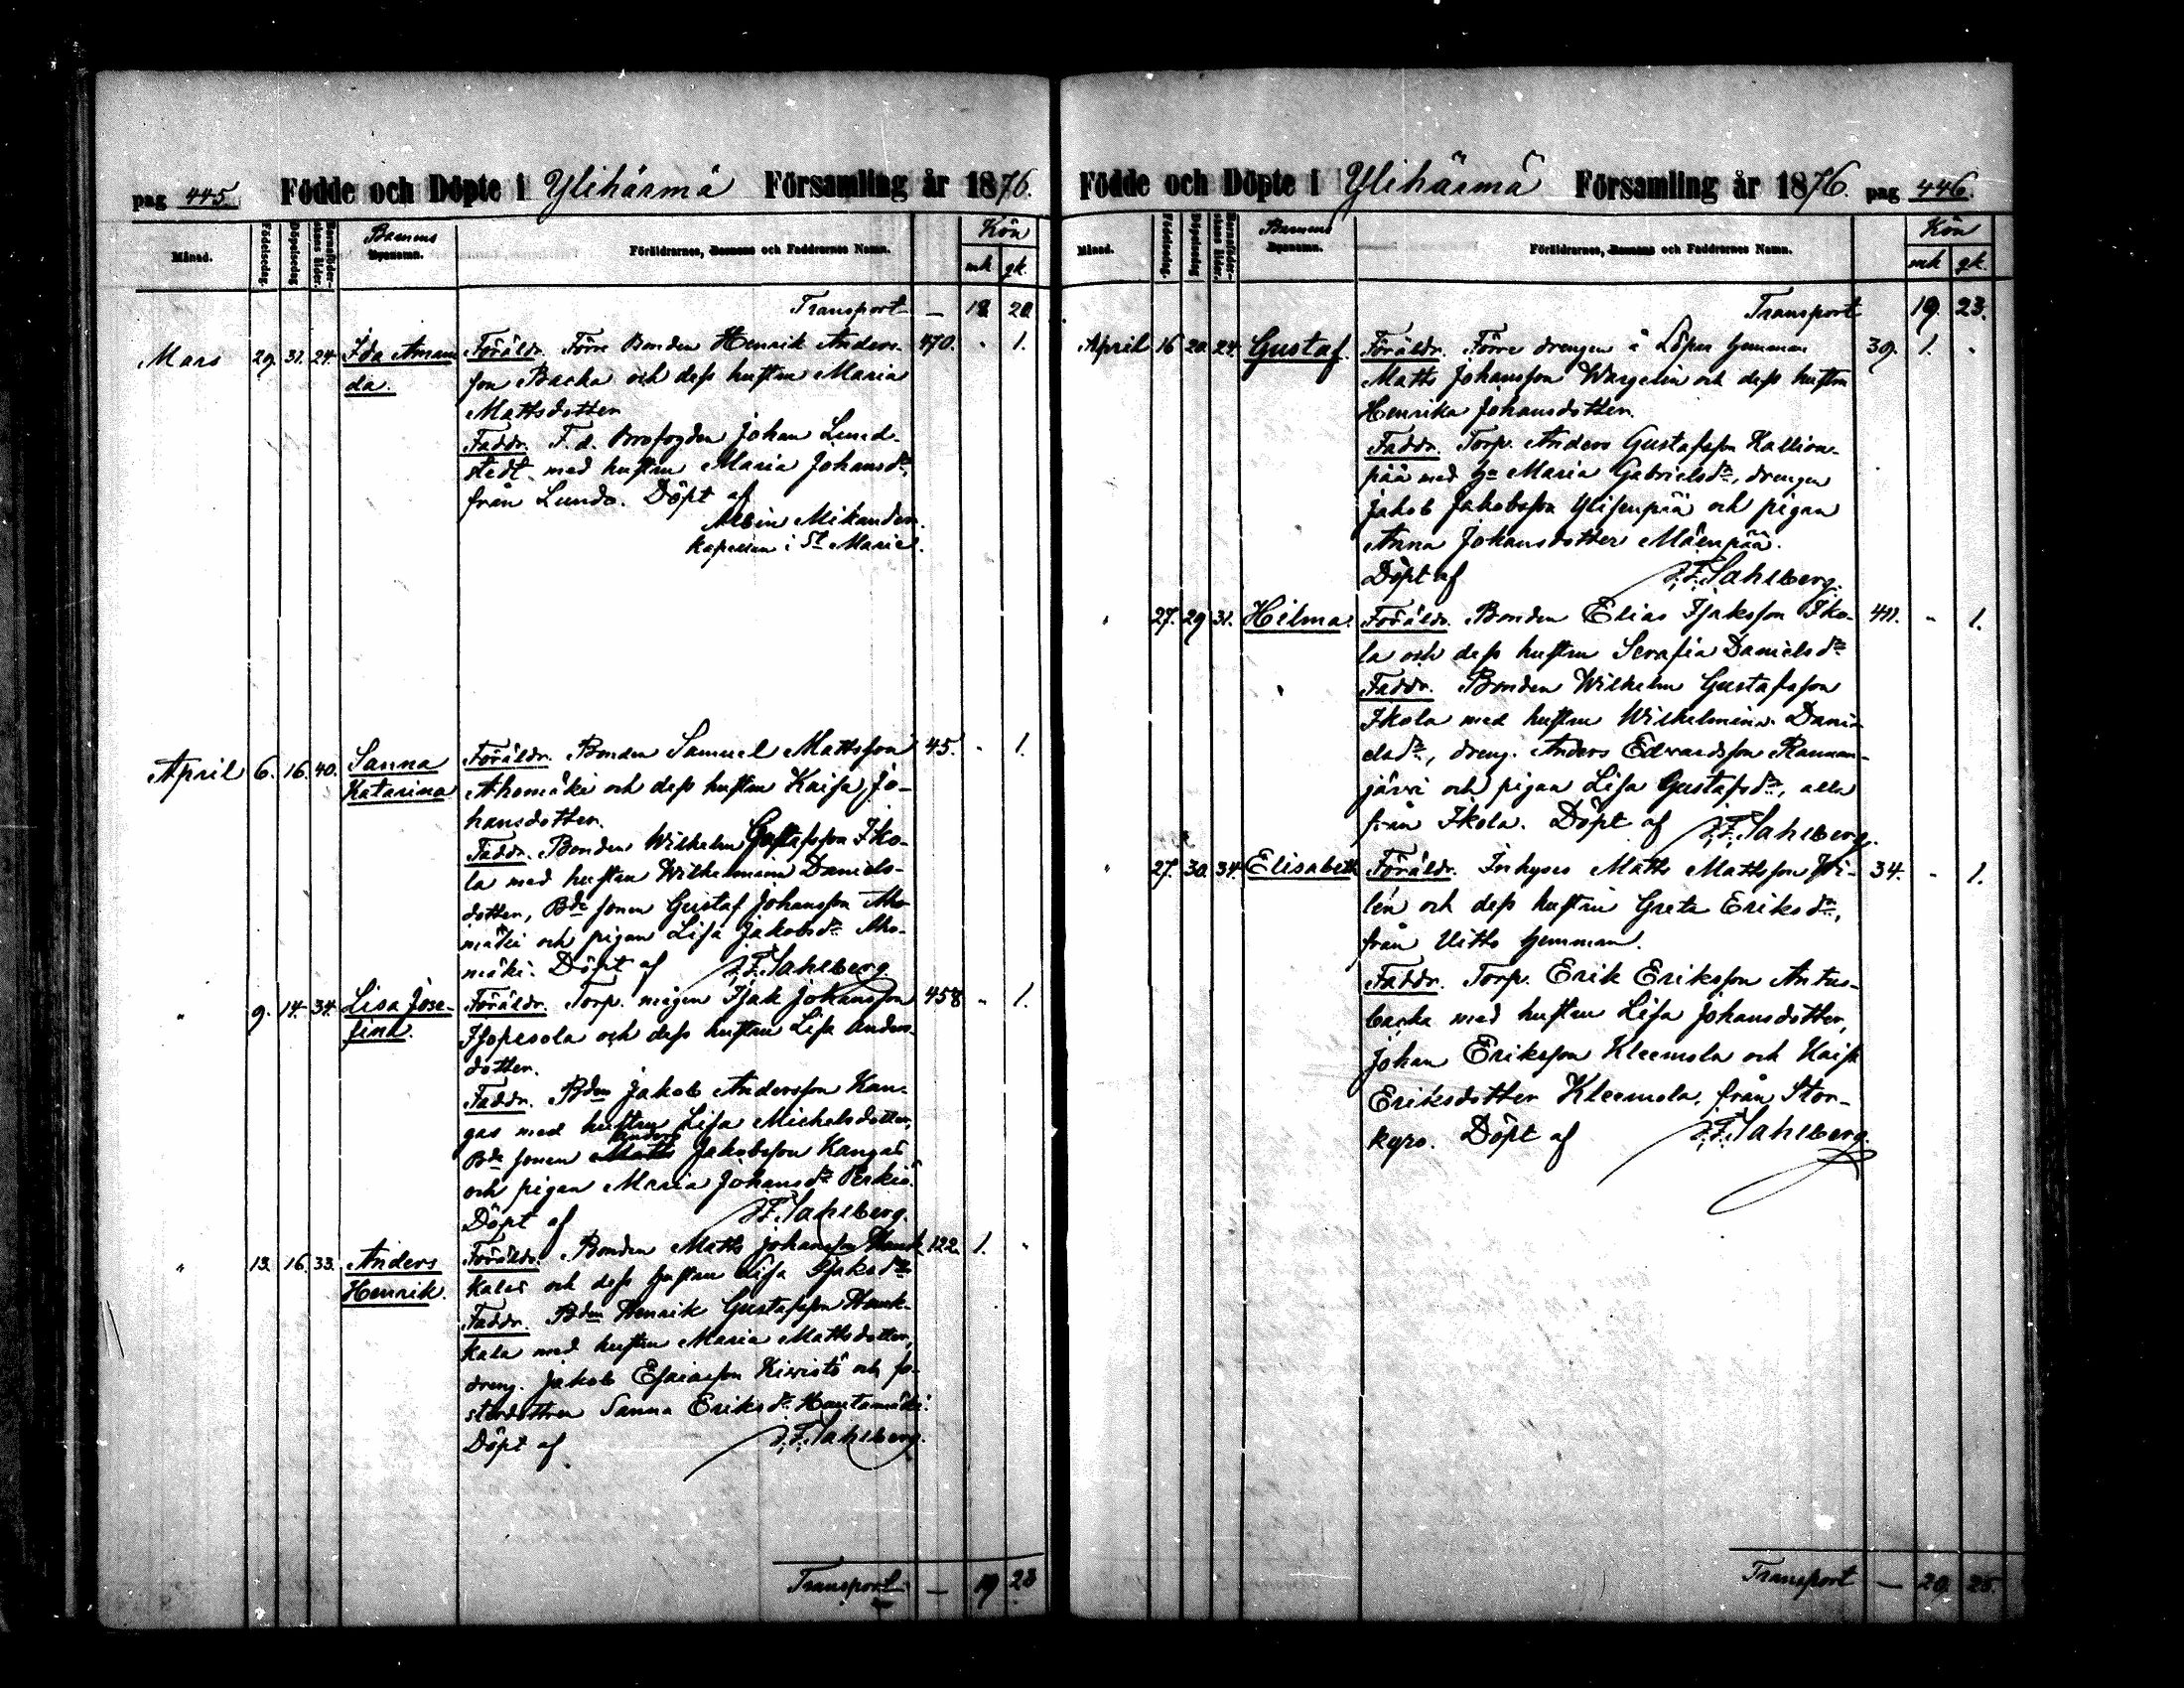 pag 445. Födde och Döpte i Ylihärmä Församling år 1876.
Månad. Födelsedag. Döpelsedag Barnaföderskans ålder. Barnens Dopnamn. Föräldrarnes, Barnens och Faddrarnes Namn. Kön
mk. qk.
Transport — 18. 20.
Mars 29. 31. 24. Ida Aman- Föräldr. Förre Bonden Henrik Anders- 470. " 1.
da. son Backa och dess hustru Maria
Mattsdotter
Faddr. F.d. Brofogden Johan Lund-
stedt med hustru Maria Johansdr.
från Lundo. Döpt af
Albin Mikander.
Kapellan i St Marie.
April 6. 16. 40. Sanna Föräldr. Bonden Samuel Mattsson 45. " 1.
Katarina Ahomäki och dess hustru Kaisa Jo-
hansdotter.
Faddr. Bonden Wilhelm Gustafsson Iko-
la med hustru Wilhelmina Daniels-
dotter, Bde sonen Gustaf Johansson Aho-
mäki och pigan Lisa Jakobsdr Aho-
mäki. Döpt af J.F. Sahlberg.
" 9. 14. 34. Lisa Jose- Föräldr. Torp. mågen Isak Johansson 458 " 1.
fina. Isopesola och dess hustru Lisa Anders-
dotter.
Faddr. Bden Jakob Andersson Kan-
gas med hustru Lisa Michelsdotter,
Anders
Bde sonen Matts Jakobsson Kangas
och pigan Maria Johansdr Perkiö.
Döpt af J.F. Sahlberg.
" 13. 16. 33. Anders Föräldr. Bonden Matts Johansson Hank- 122. 1. "
Henrik. kala och dess hustru Lisa Isaksdr
Faddr. Bden Henrik Gustafsson Hank-
kala med hustru Maria Mattsdotter,
dreng. Jakob Esaiasson Kivistö och fo-
sterdottren Sanna Eriksdr Hautamäki.
Döpt af J.F. Sahlberg.
Transport — 19 23
Födde och Döpte i Ylihärmä Församling år 1876. pag 446.
Månad. Födelsedag. Döpelsedag Barnaföderskans ålder. Barnens Dopnamn. Föräldrarnes, Barnens och Faddrarnes Namn. Kön
mk qk.
Transport 19. 23.
April 16 20. 24. Gustaf. Föräldr. Förre drengen å Löpar hemman 39. 1. "
Matts Johansson Wargelin och dess hustru
Henrika Johansdotter.
Faddr. Torp. Anders Gustafsson Kallion-
pää med hu Maria Gabrielsdr, drengen
Jakob Jakobsson Ylisenpää och pigan
Anna Johansdotter Mäenpää.
Döpt af J.F. Sahlberg.
" 27. 29 31. Hilma. Föräldr. Bonden Elias Isaksson Iko- 411. " 1.
la och dess hustru Serafia Danielsdr
Faddr. Bonden Wilhelm Gustafsson
Ikola med hustru Wilhelmina Dani-
elsdr, dreng. Anders Edvardsson Rannan-
järvi och pigan Lisa Gustafsdr, alla
från Ikola. Döpt af J.F. Sahlberg.
" 27. 30. 34. Elisabeth Föräldr. Inhyses Matts Mattsson 34. " 1.
lén och dess hustru Greta Eriksdr,
från Uitto hemman.
Faddr. Torp. Erik Eriksson Antus-
backa med hustru Lisa Johansdotter,
Johan Eriksson Kleemola och Kaisa
Eriksdotter Kleemola, från Stor-
kyro. Döpt af J.F. Sahlberg.
Transport — 20. 25.